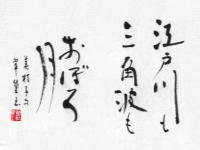 江戸川も
三角波も
おぼろ
月